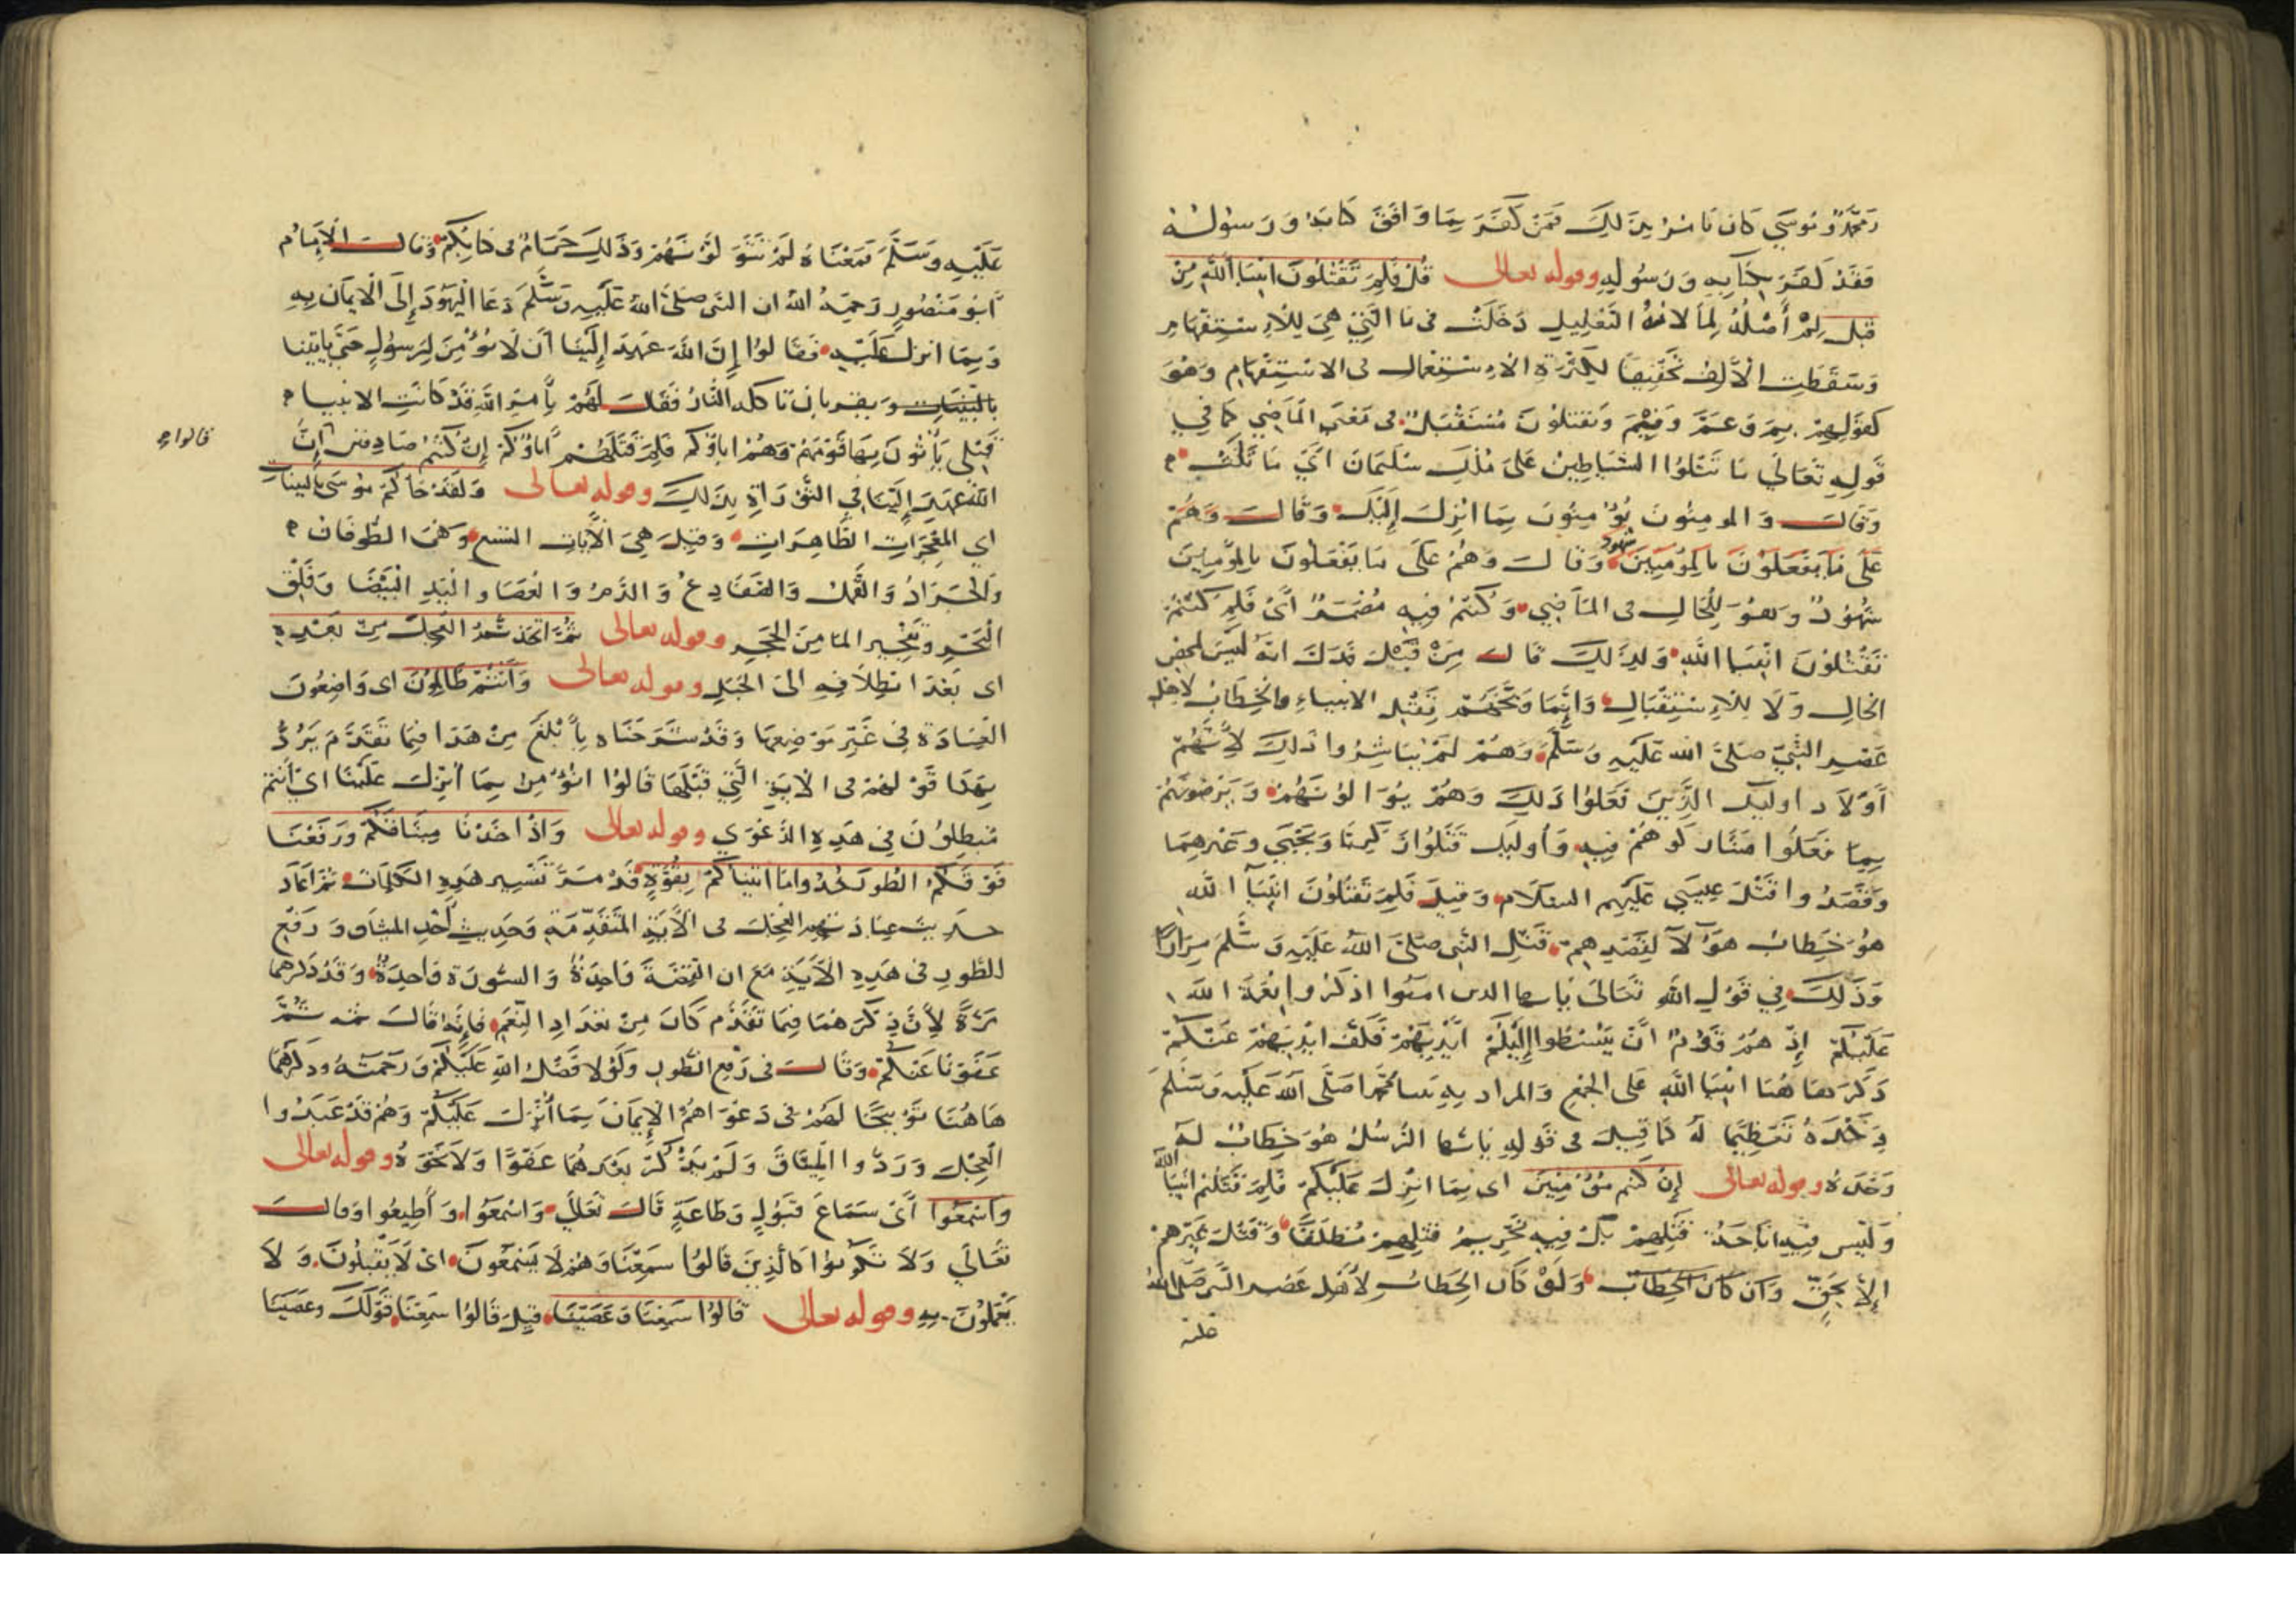 ومحمد وموسى كان نامر بذلك فمن كفر بما وافق كتابه ورسوله
فقد كفر بكتابه ورسوله وقوله تعالى قل فلم تقتلون انبيا الله من
قبل لم أصله لما لانه التعليل دخلت في ما التي هي للاستفهام
وسقطت الألف تخفيفا لكثرة الاستعمال في الاستفهام وهو
كقولهم بم وعم وفيم وتقتلون مستقبل في معنى الماضي كما في
قوله تعالى ما تتلوا الشياطين على ملك سليمان اي ما تلت
وقال والمومنون يؤمنون بما انزل إليك وقال وهم
على ما يفعلون بالمؤمنين شهود وقال وهم على ما يفعلون بالمؤمنين
شهود وهو للحال في الماضي وكنتم فيه مضمر اي فلم كنتم
تقتلون انبيا الله ولذلك قال من قبل فدل انه ليس لمحض
الحال ولا للاستقبال وانما وبخهم بقتل الانبياء والخطاب لاهل
عصر النبي صلى الله عليه وسلم وهم لم يباشروا ذلك لأنهم
أولاد اوليك الذين فعلوا ذلك وهم يوالونهم ويرضونهم
بما فعلوا فشاركوهم فيه وأوليك قتلوا زكريا ويحيى وغيرهما
وقصدوا قتل عيسى عليهم السلام وقيل فلم تقتلون انبيا الله
هو خطاب هؤلآ لقصدهم قتل النبي صلى الله عليه وسلم مرارا
وذلك في قول الله تعالى يايها الذين امنوا اذكروا نعمة الله
عليكم إذ هم قوم ان يبسطوا إليكم ايديهم فكف ايديهم عنكم
وذكر هاهنا انبيا الله على الجمع والمراد به محمدا صلى الله عليه وسلم
وحده تعظيما له كما قيل في قوله يايها الرسل هو خطاب له
وحده وقوله تعالى إن كنتم مؤمنين اي بما انزل عليكم فلم قتلتم انبيا الله
وليس فيه اباحة قتلهم بل فيه تحريم قتلهم مطلقا وقتل غيرهم
إلا بحق وان كان الخطاب ولو كان الخطاب لأهل عصر النبي صلى الله
عليه
عليه وسلم فمعناه لم تتولونهم وذلك حرام في كتابكم وقال الإمام
أبو منصور رحمه الله ان النبي صلى الله عليه وسلم دعا اليهود إلى الايمان به
وبما انزل عليه فقالوا إن الله عهد إلينا أن لا نؤمن لرسول حتى ياتينا
بالبينات وبقربان تاكله النار فقال لهم بأمر الله قد كانت الانبيا
قبلي يأتون بها قومهم وهم اباؤكم فلم قتلهم آباؤكم إن كنتم صادقين إن
قالوا
الله عهد إلينا في التوراة بذلك وقوله تعالى ولقد جاكم موسى بالبينات
اي المعجزات الظاهرات وقيل هي الآيات التسع وهن الطوفان
والجراد والقمل والضفادع والدم والعصا واليد البيضا وفلق
البحر وتفجير الما من الحجر وقوله تعالى ثم اتخذتم العجل من بعده
اي بعد انطلاقه الى الجبل وقوله تعالى وأنتم ظالمون اي واضعون
العبادة في غير موضعها وقد شرحناه بأبلغ من هذا فيما تقدم يرد
بهذا قولهم في الاية التي قبلها قالوا انؤمن بما انزل علينا اي أنتم
مبطلون في هذه الدعوى وقوله تعالى واذ اخذنا ميثاقكم ورفعنا
فوقكم الطور خذوا ما اتيناكم بقوة قد مر تفسير هذه الكلمات ثم اعاد
حديث عبادتهم العجل في الآية المتقدمة وحديث أخذ الميثاق ورفع
الطور في هذه الآية مع ان القصة واحدة والسورة واحدة وقد ذكرهما
مرة لأن ذكرهما فيما تقدم كان من تعداد النعم فإنه قال ثمه ثم
عفونا عنكم وقال في رفع الطور ولولا فضل الله عليكم ورحمته وذكرهما
هاهنا توبيخا لهم في دعواهم الإيمان بما أنزل عليكم وهم قد عبدوا
العجل وردوا الميثاق ولم يذكر بعدهما عفوا ولا نحوه وقوله تعالى
واسمعوا أي سماع قبول وطاعة قال تعالى واسمعوا وأطيعوا وقال
تعالى ولا تكونوا كالذين قالوا سمعنا وهم لا يسمعون اي لا يقبلون ولا
يعملون به وقوله تعالى قالوا سمعنا وعصينا قيل قالوا سمعنا قولك وعصينا